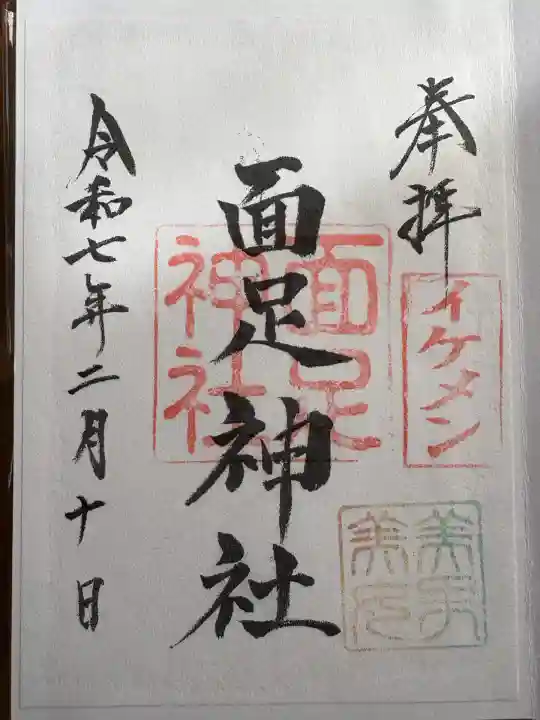 奉拝
イケメン
面足神社
面足神社
令和七年二月十日